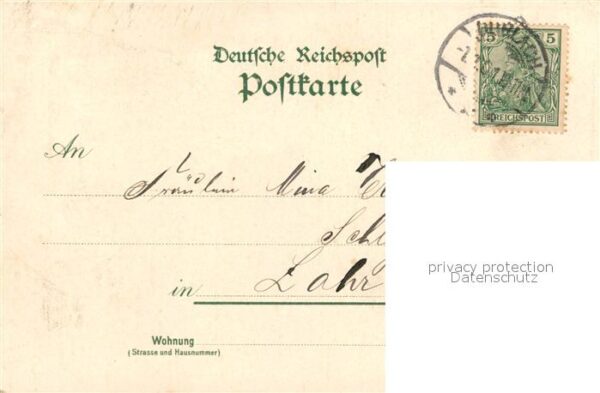 Deutsche Reichspost
Postkarte
5 5
REICHSPOST
An
Fräulein Mina
Sch
in Lahr
privacy protection
Datenschutz
Wohnung
(Strasse und Hausnummer)